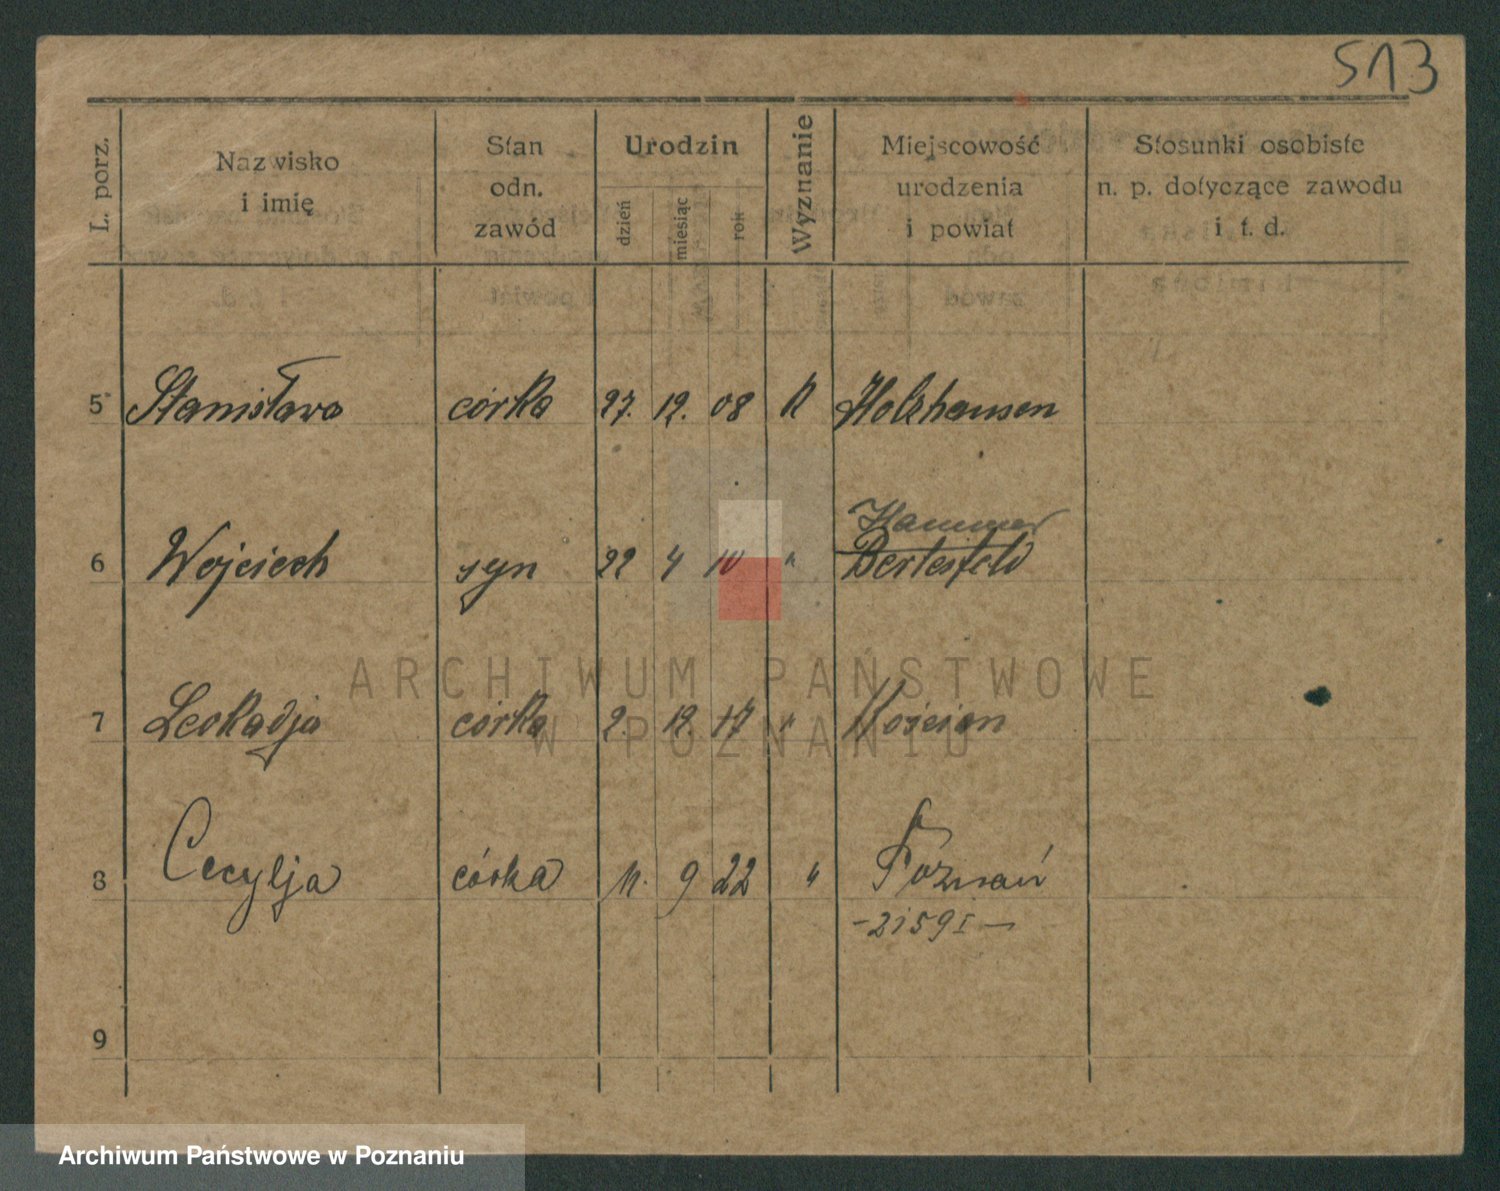 513
L. porz.
Nazwisko
i imię
Stan
odn.
zawód
Urodzin
dzień
miesiąc
rok
Wyznanie
Miejscowość
urodzenia
i powiat
Stosunki osobiste
n. p. dotyczące zawodu
i t. d.
5 Stanisława córka 27. 12. 08 K Holzhausen
Hammer
6 Wojciech syn 22 4 10 " Bertesfeld
7 Leokadja córka 2. 12. 17 " Kościan
8 Cecylja córka 11. 9 22 " Poznań
9
ARCHIWUM PAŃSTWOWE
W POZNANIU
Archiwum Państwowe w Poznaniu